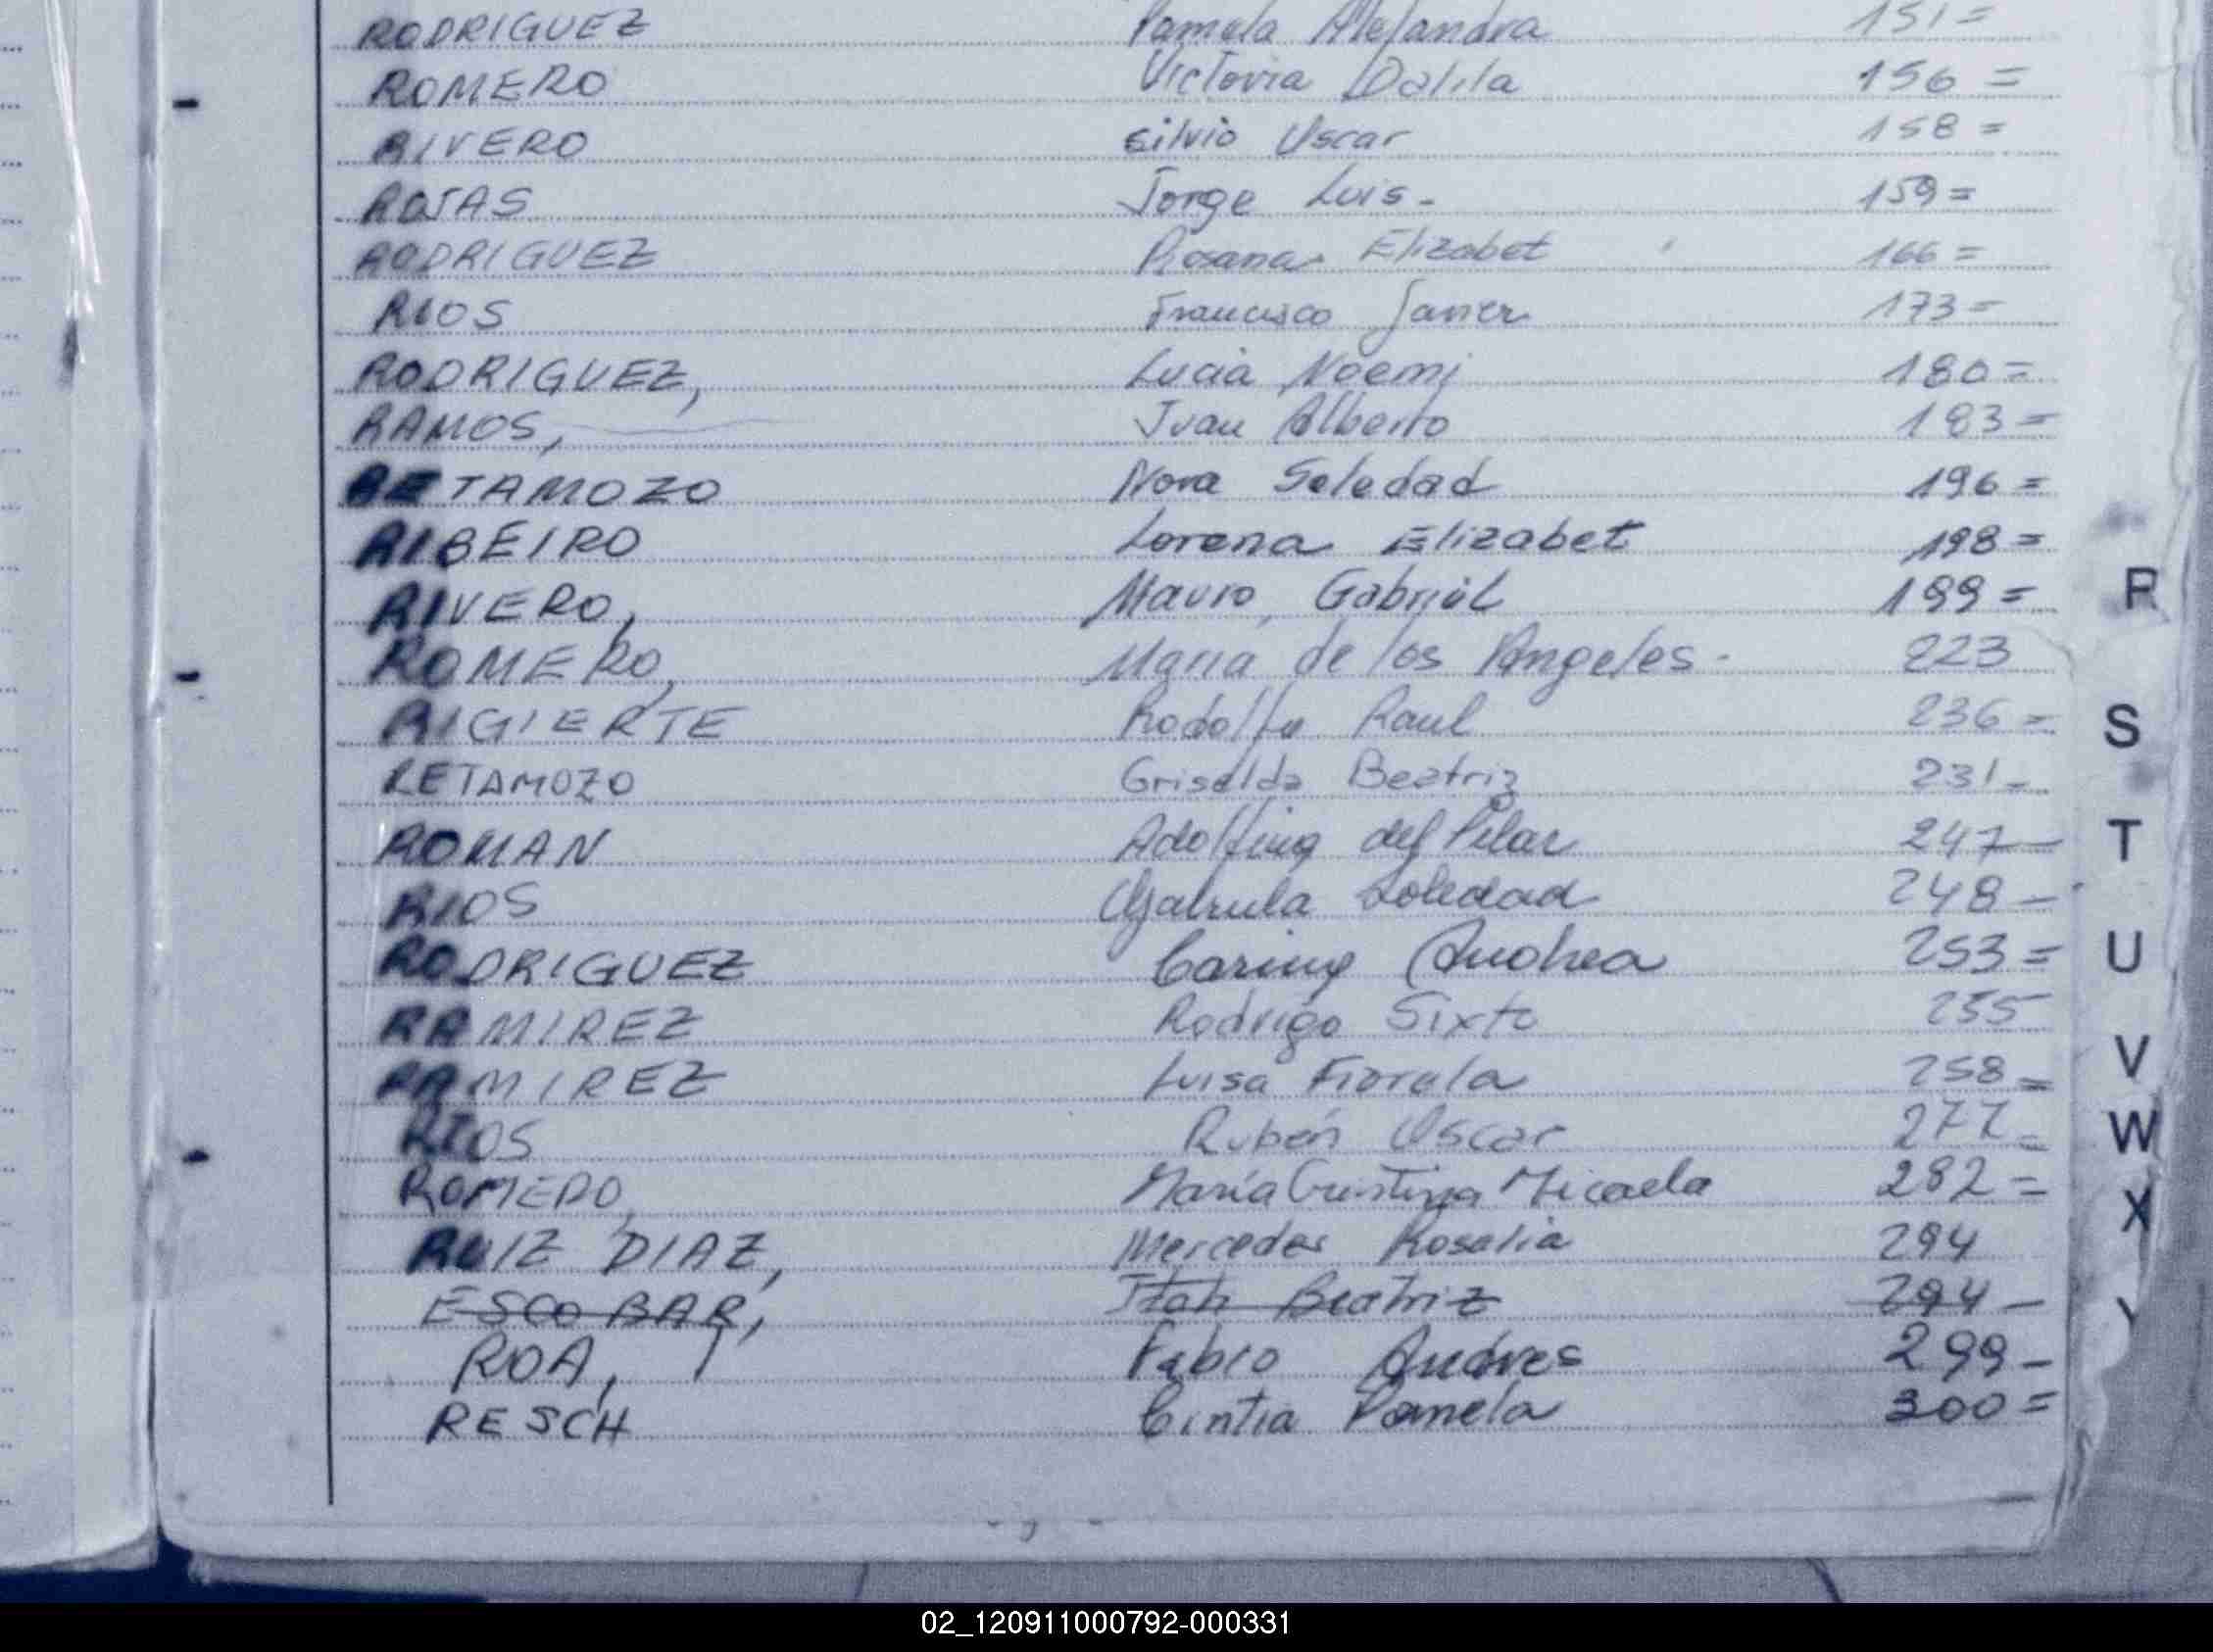 RODRIGUEZ Pamela Alejandra 151=
ROMERO Victoria Dalila 156 =
RIVERO Silvio Oscar 158 =
ROJAS Jorge Luis - 159 =
RODRIGUEZ Rosana Elizabet 166 =
RIOS Francisco Javier 173 =
RODRIGUEZ, Lucia Noemi 180 =
RAMOS, Juan Alberto 183 =
RETAMOZO Nora Soledad 196 =
RIBEIRO Lorena Elizabet 198 =
RIVERO, Mauro Gabriel 199 =
R
ROMERO, Maria de los Angeles - 223
RIGIERTE Rodolfo Raul 236 =
S
RETAMOZO Griselda Beatriz 231 -
ROMAN Adolfina del Pilar 247 -
T
RIOS Gabriela Soledad 248 -
RODRIGUEZ Carina Andrea 253 =
U
RAMIREZ Rodrigo Sixto 255
RAMIREZ Luisa Fiorela 258 =
V
RIOS Rubén Oscar 277 =
W
ROMERO, María Cristina Micaela 282 =
X
RUIZ DIAZ, Mercedes Rosalia 294
ESCOBAR, Beatriz 294 -
Y
ROA, Fabio Andres 299 -
RESCH Cintia Pamela 300 =
02_120911000792-000331